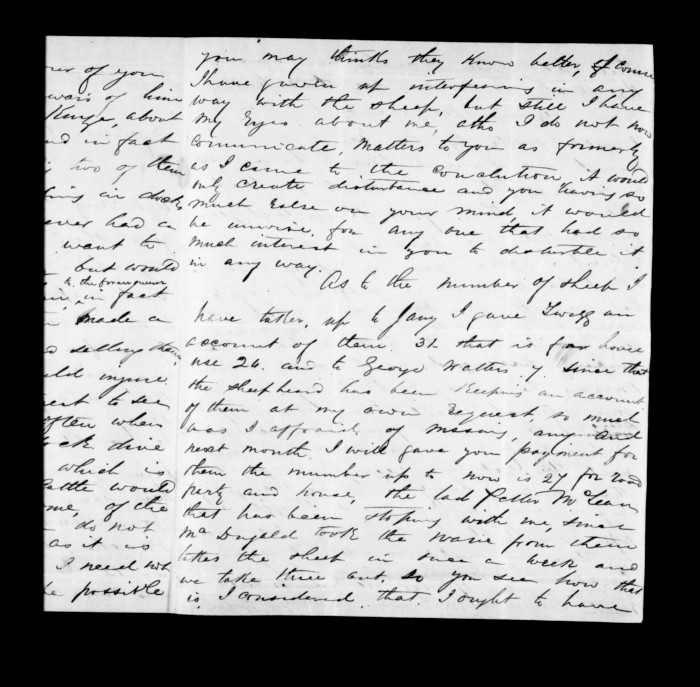 our of you
wars of him
Kenzie, about
nd in fact
two of them
ing in dock
ever had a
want to
but would
to the former
in fact
made a
selling them
uld injure
est to see
often when
ock dive
which is
Cattle would
me, of the
do not
as it is
I need not
be possible
you may thinks they know better, of course
I have given up interfearing in any
way with the sheep, but still I have
my Eyes about me, altho I do not now
communicate, matters to you as formerly
as I came to the conclution it would
only create disturtance and you having so
much Else on your mind, it would
be unwise, for any one that had so
much interest in you to disturbe it
in any way.
As to the number of sheep I
have taken, up to Jany I gave Twigg an
account of them. 32 that is for house
use 26. and to George Watters 7 since that
the sheepheard has been Keeping an account
of them at my own request, so much
was I affraid of missing, any and
next month. I will gave you payment for
them the number up to now is 27 for road
party and house, the lad Petter McLean
that has been stoping with me, since
McDugald took the ware from them
takes the sheep in once a week and
we take three out. so you see how that
is. I considered that I ought to have